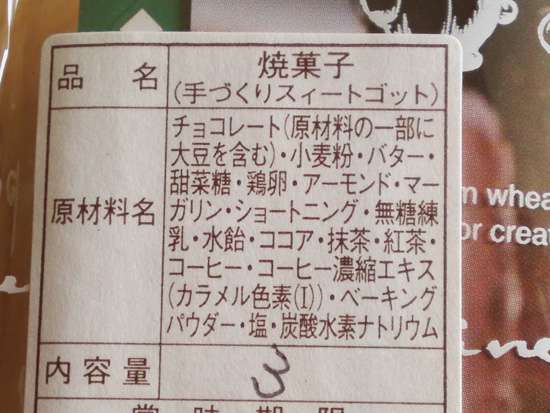 品 名
焼菓子
(手づくりスィートゴット)
原材料名
チョコレート(原材料の一部に
大豆を含む)・小麦粉・バター・
甜菜糖・鶏卵・アーモンド・マー
ガリン・ショートニング・無糖練
乳・水飴・ココア・抹茶・紅茶・
コーヒー・コーヒー濃縮エキス
(カラメル色素(I))・ベーキング
パウダー・塩・炭酸水素ナトリウム
内容量
3
賞味期限
whea
or creat